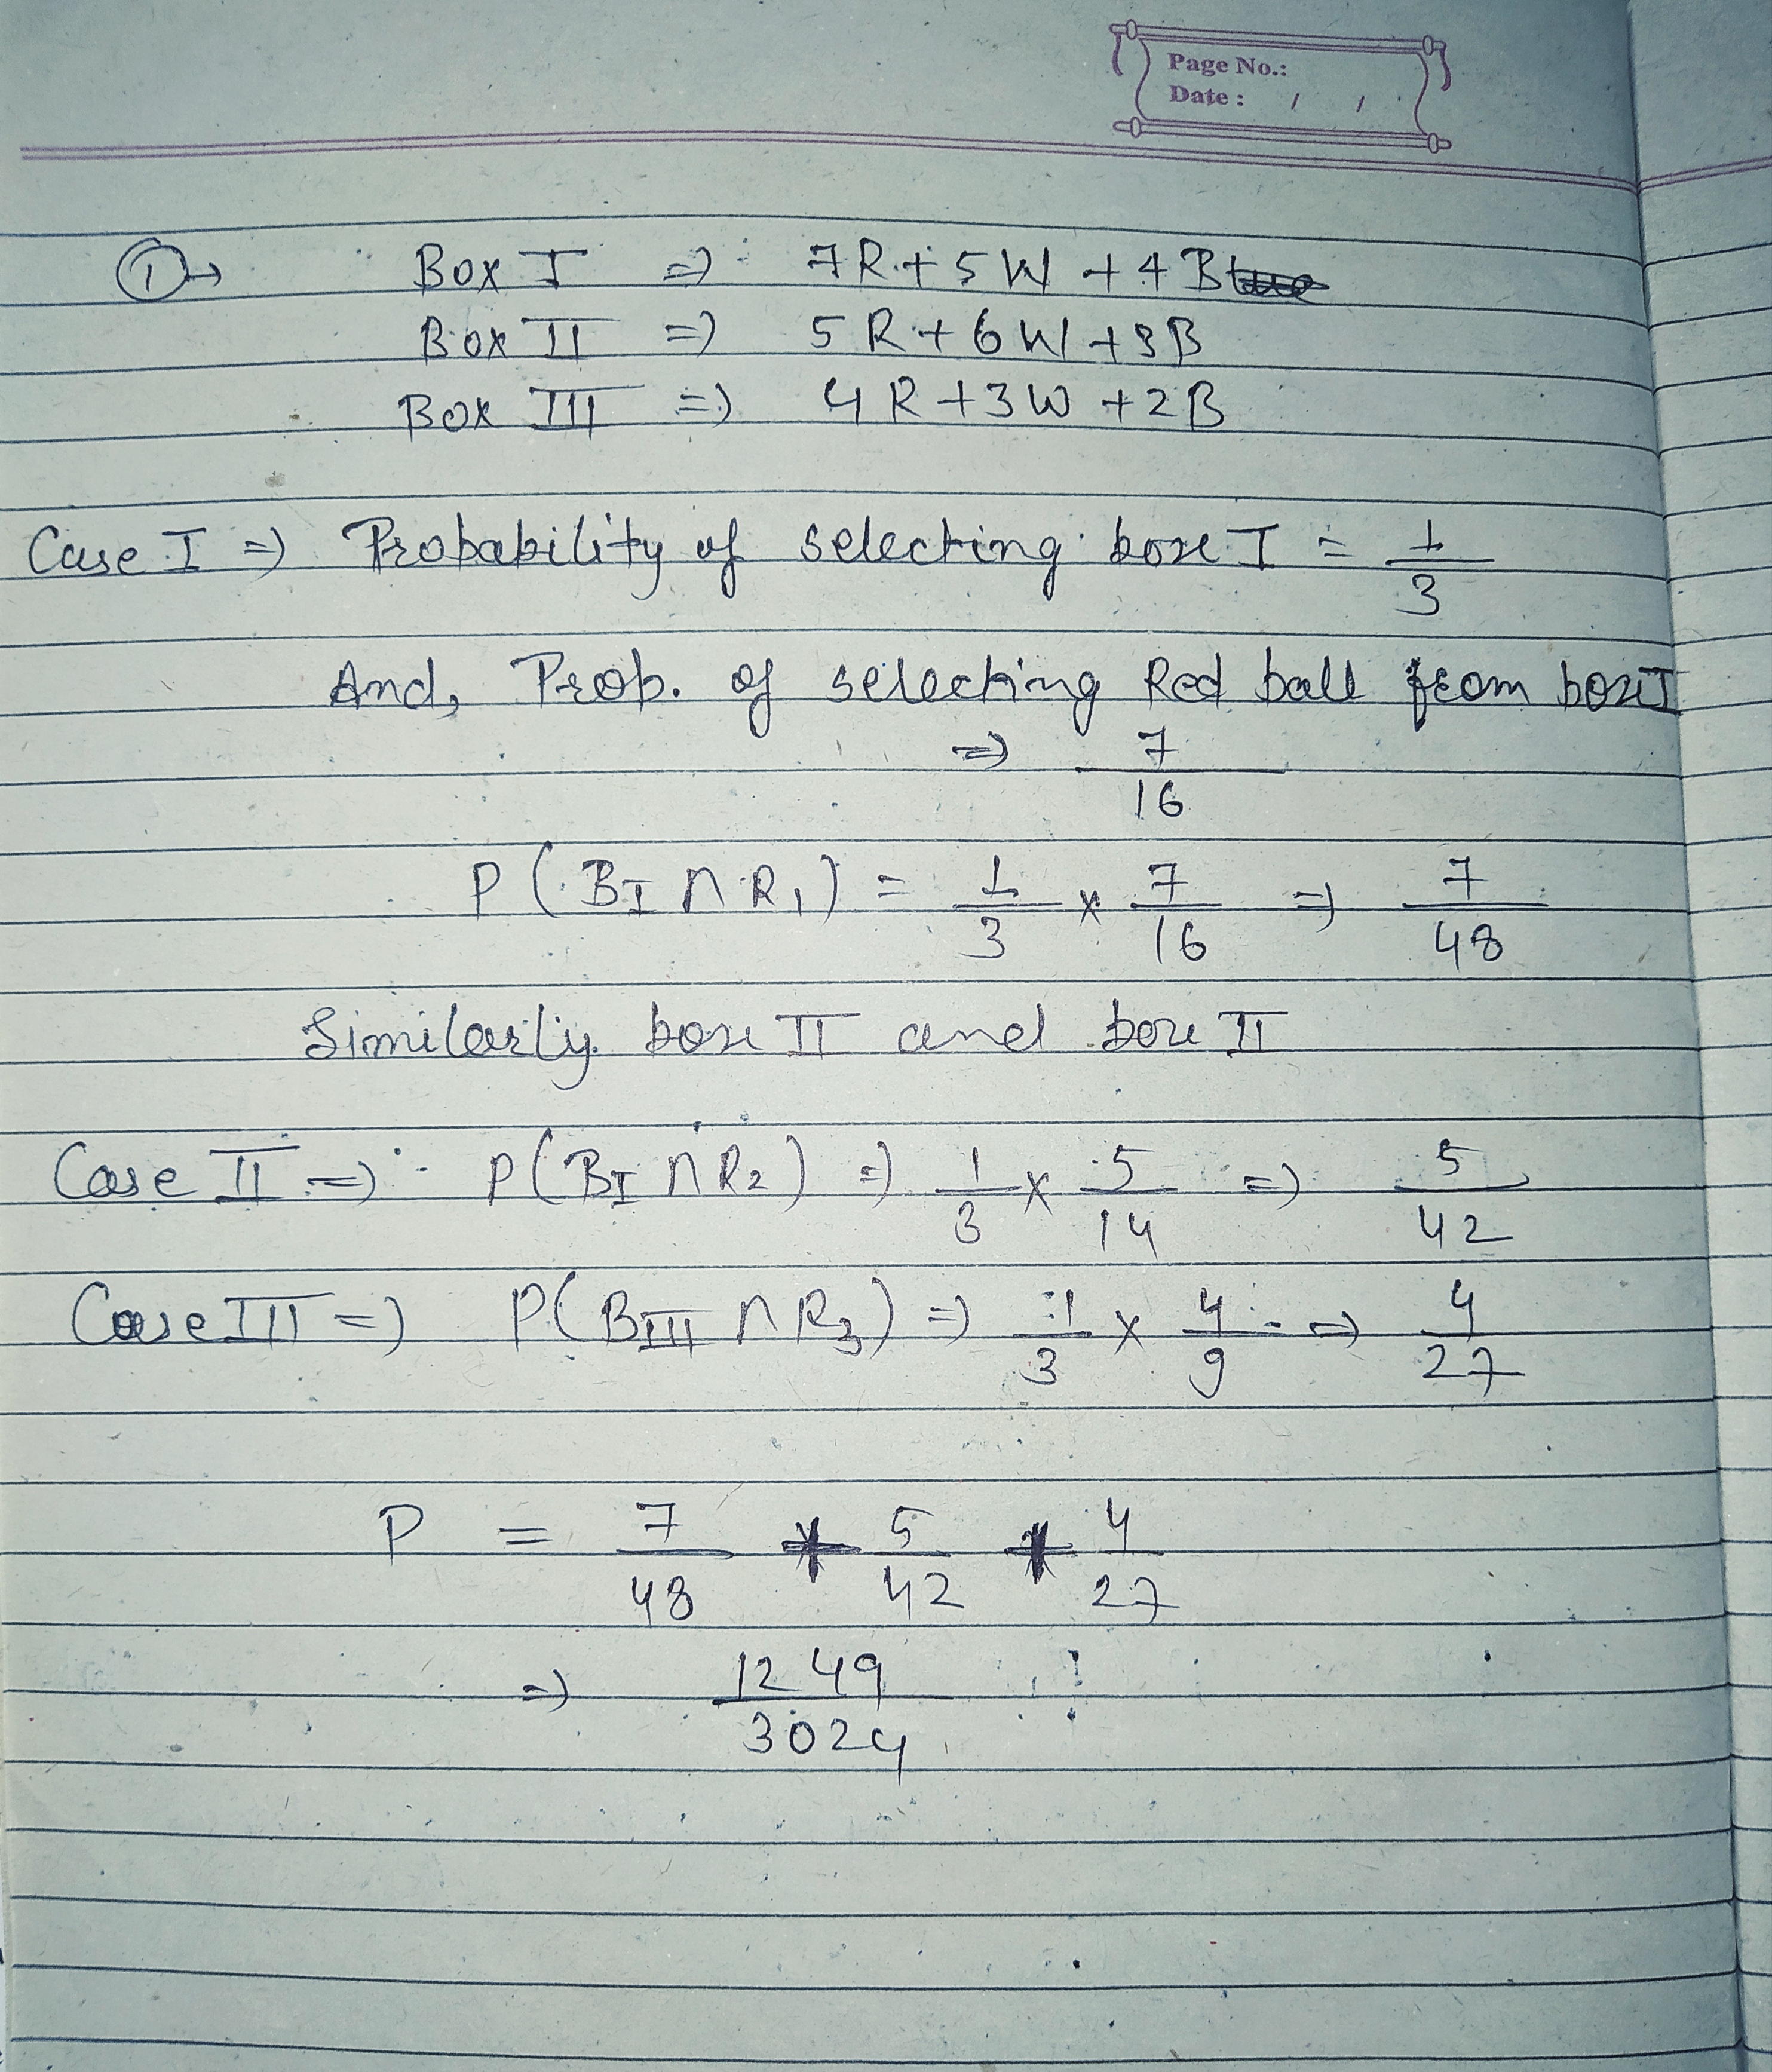 Page No.:
Date : / /
① → Box I => 7R + 5W + 4B
Box II => 5R + 6W + 3B
Box III => 4R + 3W + 2B
Case I => Probability of selecting box I = 1/3
And, Prob. of selecting Red ball from box I
=> 7/16
P(B_I ∩ R_1) = 1/3 × 7/16 => 7/48
Similarly box II and box II
Case II => P(B_I ∩ R_2) => 1/3 × 5/14 => 5/42
Case III => P(B_III ∩ R_3) => 1/3 × 4/9 => 4/27
P = 7/48 + 5/42 + 4/27
=> 1249/3024